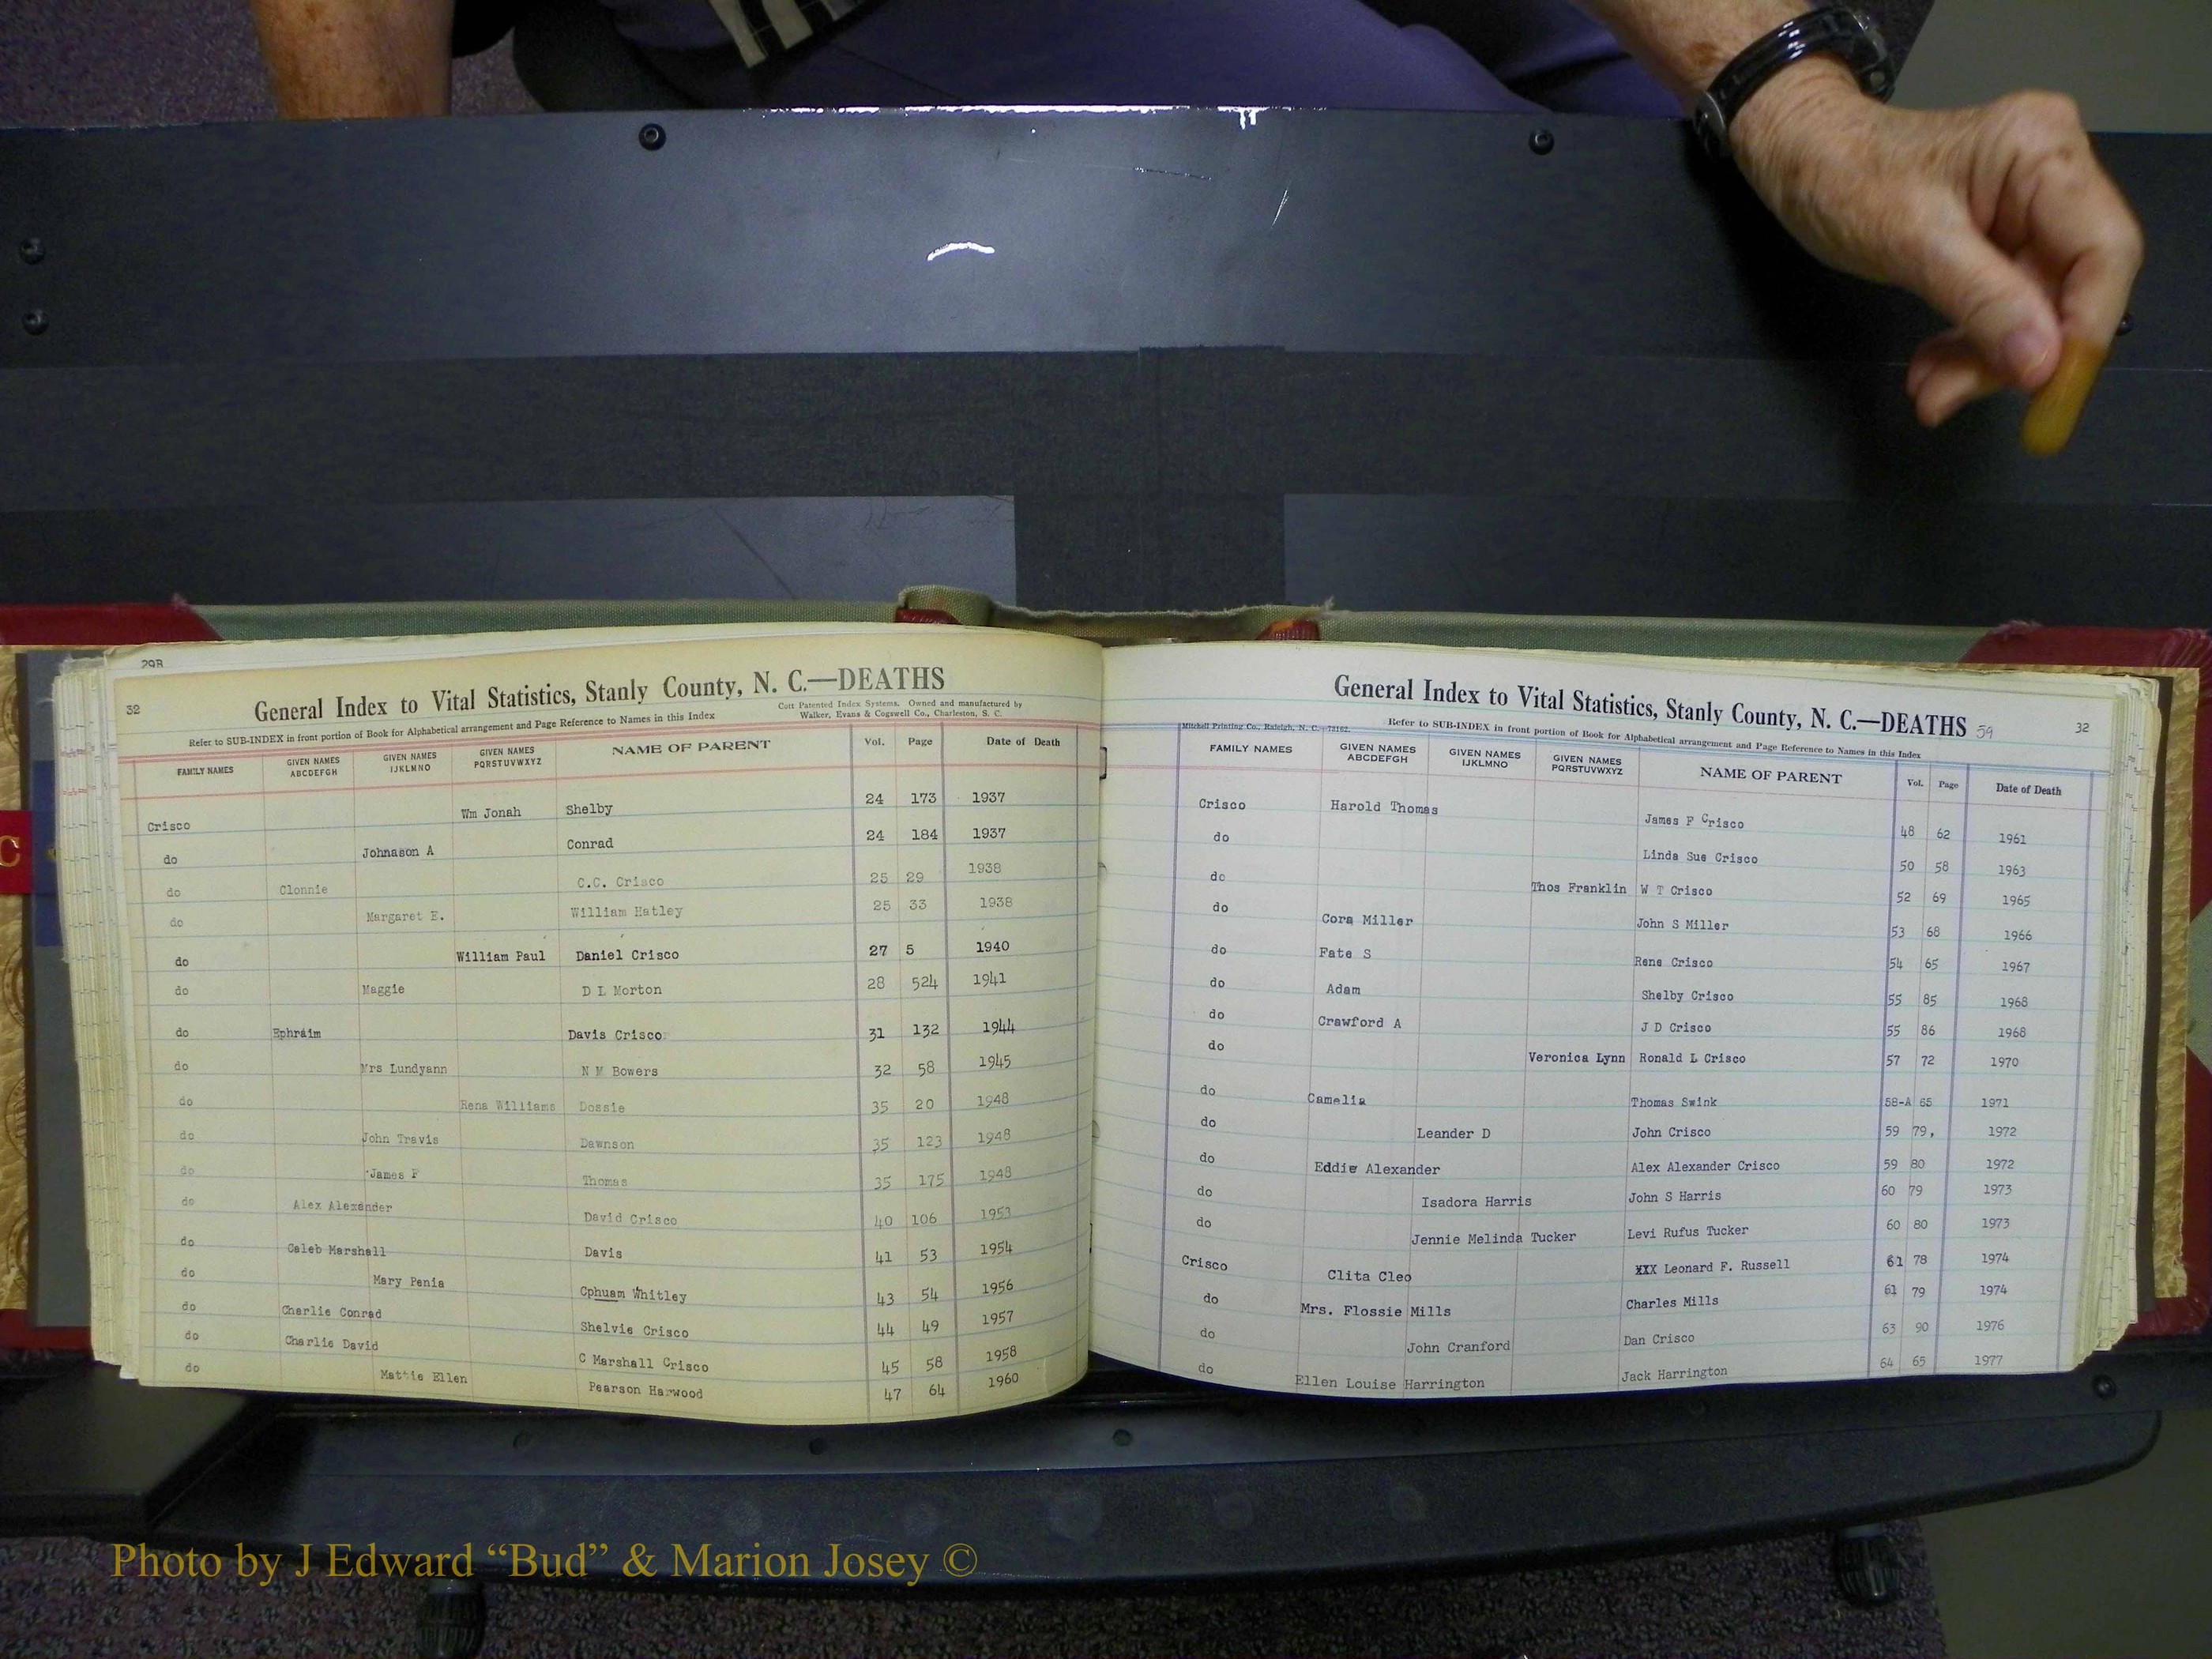 29B
32
General Index to Vital Statistics, Stanly County, N. C.—DEATHS
Refer to SUB-INDEX in front portion of Book for Alphabetical arrangement and Page Reference to Names in this Index
Cott Patented Index Systems. Owned and manufactured by
Walker, Evans & Cogswell Co., Charleston, S. C.
FAMILY NAMES GIVEN NAMES ABCDEFGH GIVEN NAMES IJKLMNO GIVEN NAMES PQRSTUVWXYZ NAME OF PARENT Vol. Page Date of Death
Crisco Wm Jonah Shelby 24 173 1937
do Johnason A Conrad 24 184 1937
do Clonnie C.C. Crisco 25 29 1938
do Margaret E. William Hatley 25 33 1938
do William Paul Daniel Crisco 27 5 1940
do Maggie D L Morton 28 524 1941
do Ephraim Davis Crisco 31 132 1944
do Mrs Lundyann N M Bowers 32 58 1945
do Rena Williams Dossie 35 20 1948
do John Travis Dawnson 35 123 1948
do James F Thomas 35 175 1948
do Alex Alexander David Crisco 40 106 1953
do Caleb Marshall Davis 41 53 1954
do Mary Penia Cphuam Whitley 43 54 1956
do Charlie Conrad Shelvie Crisco 44 49 1957
do Charlie David C Marshall Crisco 45 58 1958
do Mattie Ellen Pearson Harwood 47 64 1960
General Index to Vital Statistics, Stanly County, N. C.—DEATHS 59
32
Mitchell Printing Co., Raleigh, N. C.
Refer to SUB-INDEX in front portion of Book for Alphabetical arrangement and Page Reference to Names in this Index
FAMILY NAMES GIVEN NAMES ABCDEFGH GIVEN NAMES IJKLMNO GIVEN NAMES PQRSTUVWXYZ NAME OF PARENT Vol. Page Date of Death
Crisco Harold Thomas James F Crisco 48 62 1961
do Linda Sue Crisco 50 58 1963
do Thos Franklin W T Crisco 52 69 1965
do Cora Miller John S Miller 53 68 1966
do Fate S Rene Crisco 54 65 1967
do Adam Shelby Crisco 55 85 1968
do Crawford A J D Crisco 55 86 1968
do Veronica Lynn Ronald L Crisco 57 72 1970
do Camelia Thomas Swink 58-A 65 1971
do Leander D John Crisco 59 79, 1972
do Eddie Alexander Alex Alexander Crisco 59 80 1972
do Isadora Harris John S Harris 60 79 1973
do Jennie Melinda Tucker Levi Rufus Tucker 60 80 1973
Crisco Clita Cleo XXX Leonard F. Russell 61 78 1974
do Mrs. Flossie Mills Charles Mills 61 79 1974
do John Cranford Dan Crisco 63 90 1976
do Ellen Louise Harrington Jack Harrington 64 65 1977
C
Photo by J Edward “Bud” & Marion Josey ©